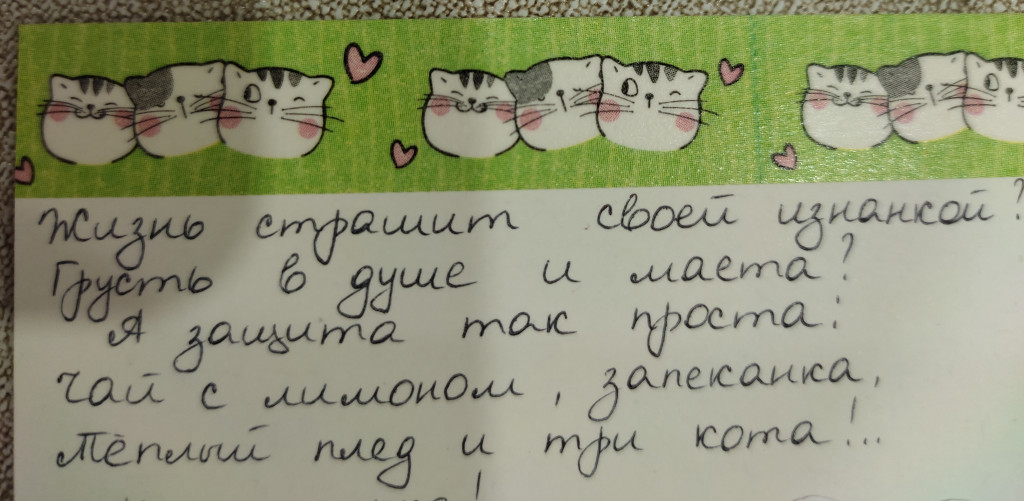 Жизнь страшит своей изнанкой?
Грусть в душе и маета?
А защита так проста:
Чай с лимоном, запеканка,
Тёплый плед и три кота!..